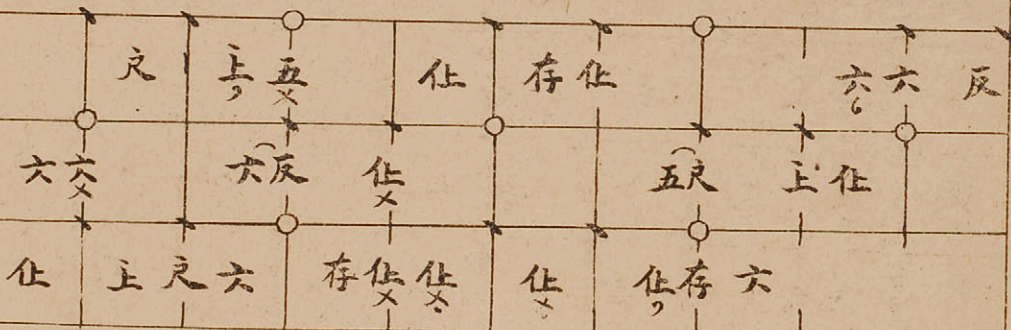 尺 上 五 仩 存 仩 六 六 反
六 六 六 反 仩 五 尺 上 仩
仩 上 尺 六 存 仩 仩 仩 仩 存 六